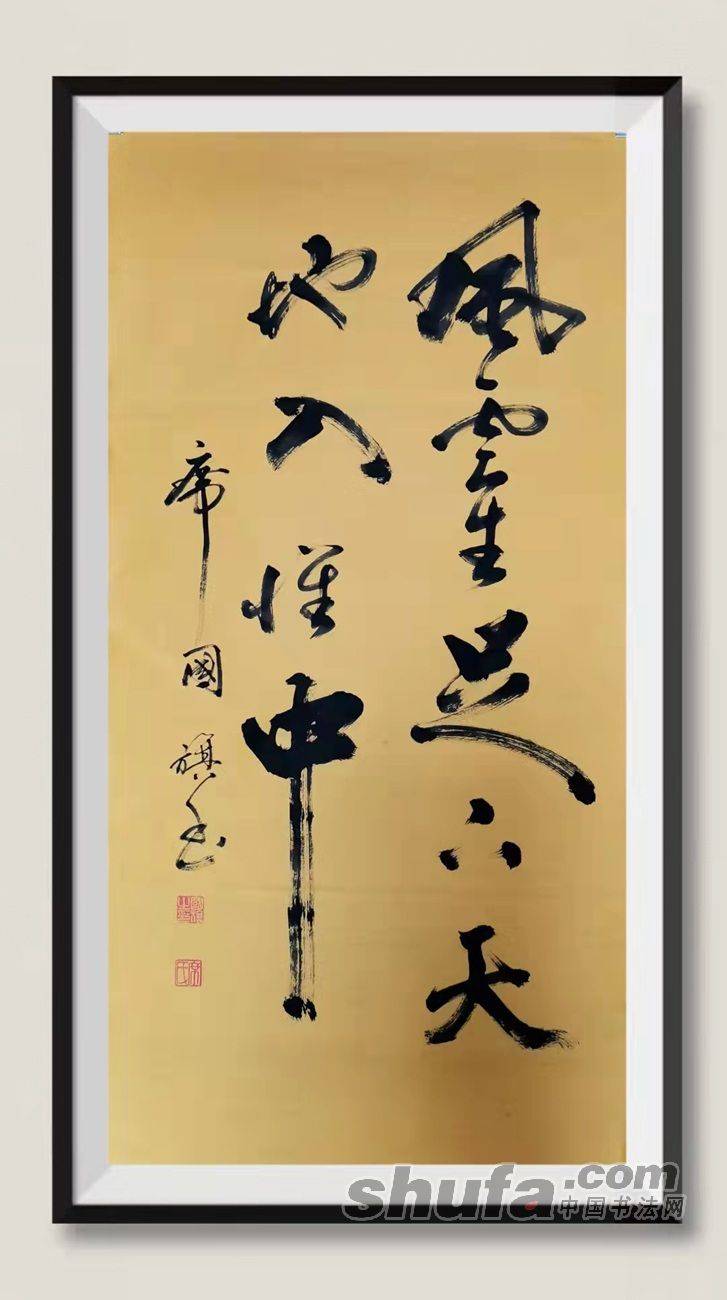 風雲生足下天
地入懷中
席國旗書
shufa.com
中国书法网